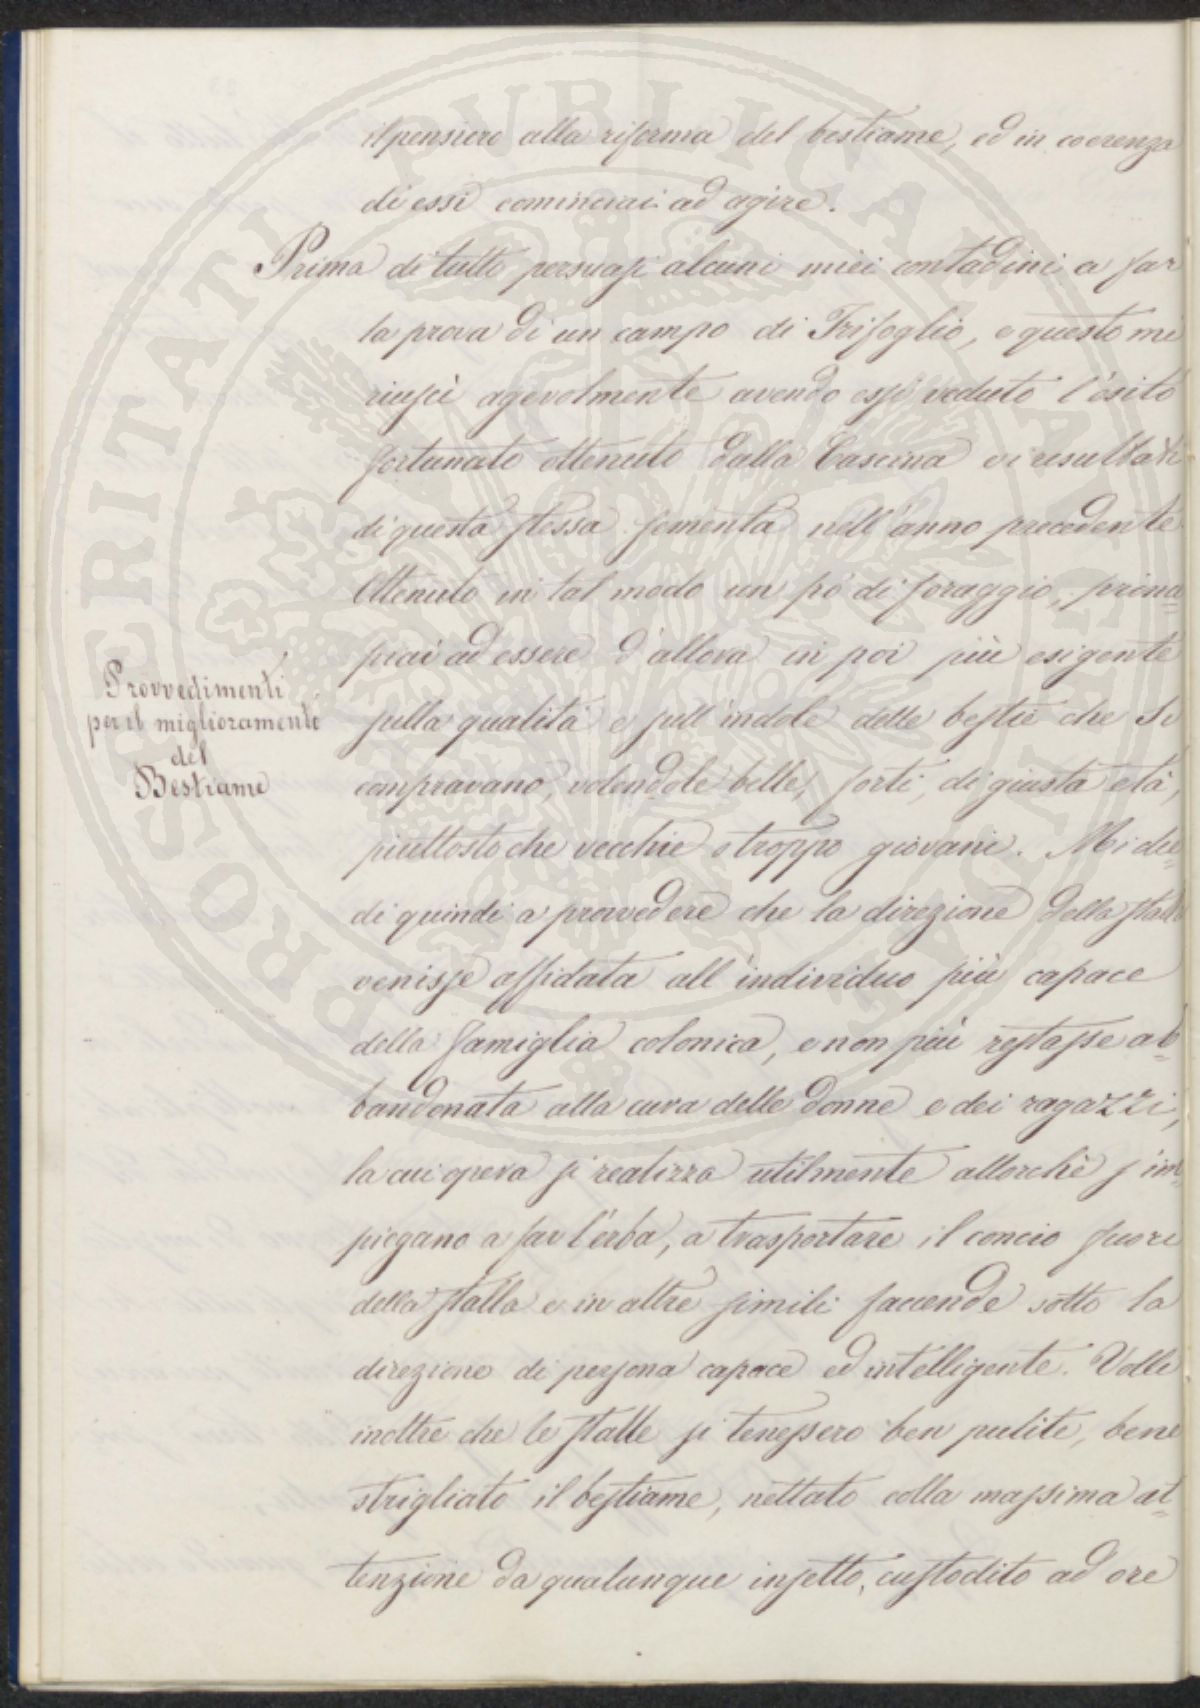 il pensiero alla riforma del bestiame, ed in coerenza
di essi cominciai ad agire.
Prima di tutto persuasi alcuni miei contadini a far
la prova di un campo di Trifoglio, e questo mi
riuscì agevolmente avendo essi veduto l'esito
fortunato ottenuto dalla Cascina e i resultati
di questa stessa sementa nell'anno precedente
Ottenuto in tal modo un pò di foraggio, princi=
piai ad essere d'allora in poi più esigente
sulla qualità e sull'indole delle bestie che si
compravano, volendole belle, forti, di giusta età,
piuttosto che vecchie o troppo giovani. Mi die=
di quindi a provvedere che la direzione della stalla
venisse affidata all'individuo più capace
della famiglia colonica, e non più restasse ab=
bandonata alla cura delle donne e dei ragazzi,
la cui opera si realizza utilmente allorchè s'im=
piegano a far l'erba, a trasportare il concio fuori
della stalla e in altre simili faccende sotto la
direzione di persona capace ed intelligente. Volli
inoltre che le stalle si tenessero ben pulite, bene
strigliato il bestiame, nettato colla massima at=
tenzione da qualunque insetto, custodito ad ore
Provvedimenti
per il miglioramento
del
Bestiame
PROSPERITATI PUBLICAE AUGENDAE